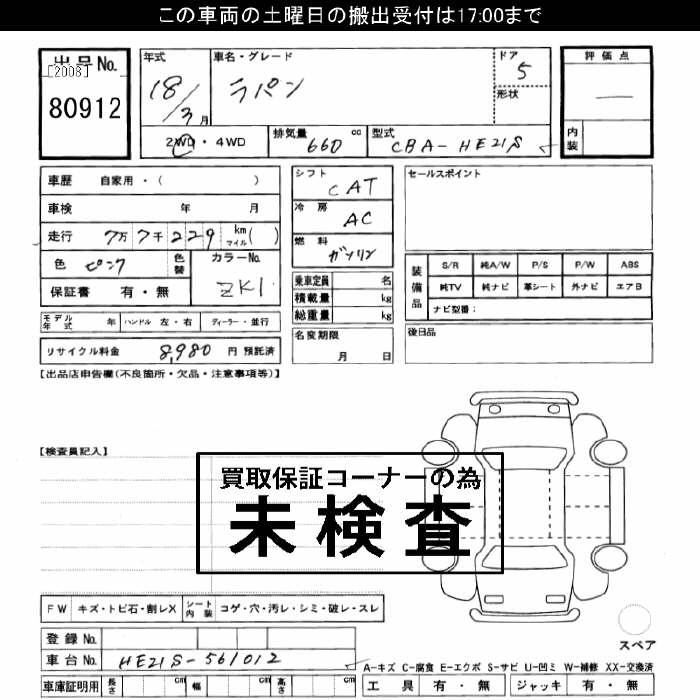 この車両の土曜日の搬出受付は17:00まで
出品No.
[2008]
80912
年式
18/3月
車名・グレード
ラパン
ドア
5
形状
評価点
—
内装
2WD・4WD
排気量 660 cc
型式 CBA-HE21S
車歴 自家用・( )
車検 年 月
走行 7万7千229 km マイル( )
色 ピンク
色替
カラーNo.
ZK1
保証書 有・無
モデル年式 年 ハンドル 左・右 ディーラー・並行
リサイクル料金 8,980 円 預託済
シフト
CAT
冷房
AC
燃料
ガソリン
乗車定員 名
積載量 kg
総重量 kg
名変期限
月 日
セールスポイント
装備品
S/R 純A/W P/S P/W ABS
純TV 純ナビ 革シート 外ナビ エアB
ナビ型番：
後日品
【出品店申告欄(不良箇所・欠品・注意事項等)】
【検査員記入】
買取保証コーナーの為
未検査
FW キズ・トビ石・割レX シート内装 コゲ・穴・汚レ・シミ・破レ・スレ
登録No.
車台No. HE21S-561012
車庫証明用 長さ cm 幅 cm 高さ cm
スペア
A-キズ C-腐食 E-エクボ S-サビ U-凹ミ W-補修 XX-交換済
工具 有・無 ジャッキ 有・無